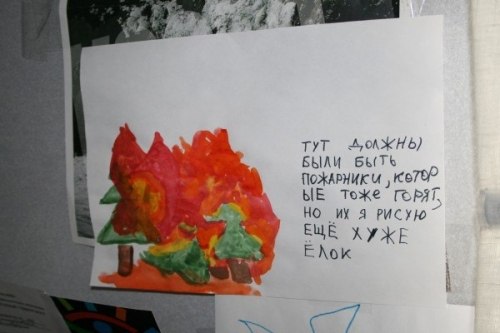 ТУТ ДОЛЖНЫ
БЫЛИ БЫТЬ
ПОЖАРНИКИ, КОТОР
ЫЕ ТОЖЕ ГОРЯТ,
НО ИХ Я РИСУЮ
ЕЩЁ ХУЖЕ
ЁЛОК